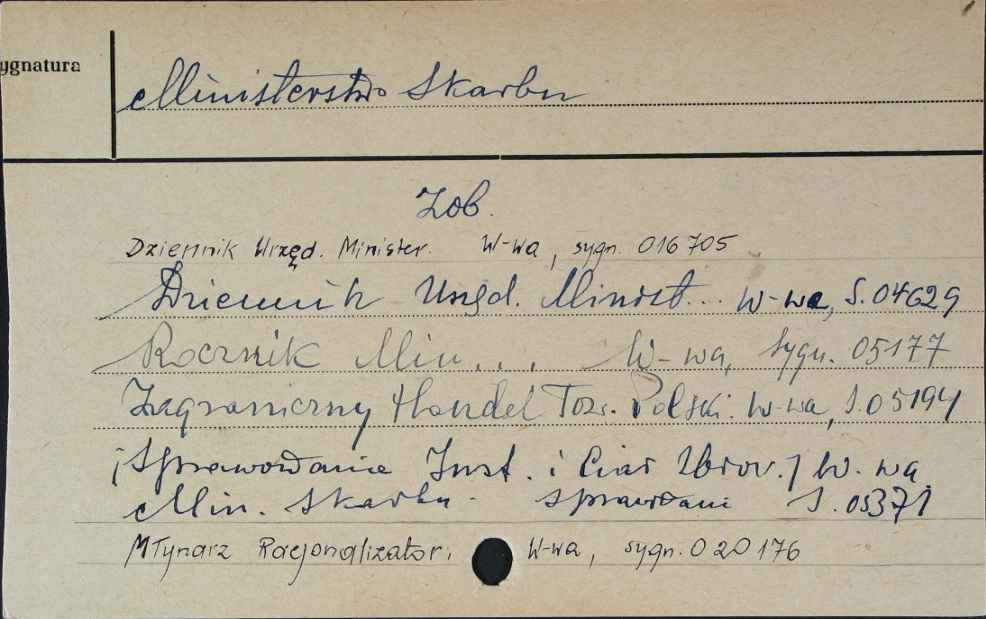 ygnatura
Ministerstwo Skarbu
Zob.
Dziennik Urzęd. Minister. W-wa, sygn. 016705
Dziennik Urzęd. Minist... W-wa, S. 04629
Rocznik Min... W-wa, sygn. 05177
Zagraniczny Handel Tow. Polski. W-wa, S. 05194
[Sprawozdanie Inst. i Ciał Zbior.] W. wa
Min. Skarbu - Sprawozdani S. 05371
Młynarz Racjonalizator. W-wa, sygn. 020176